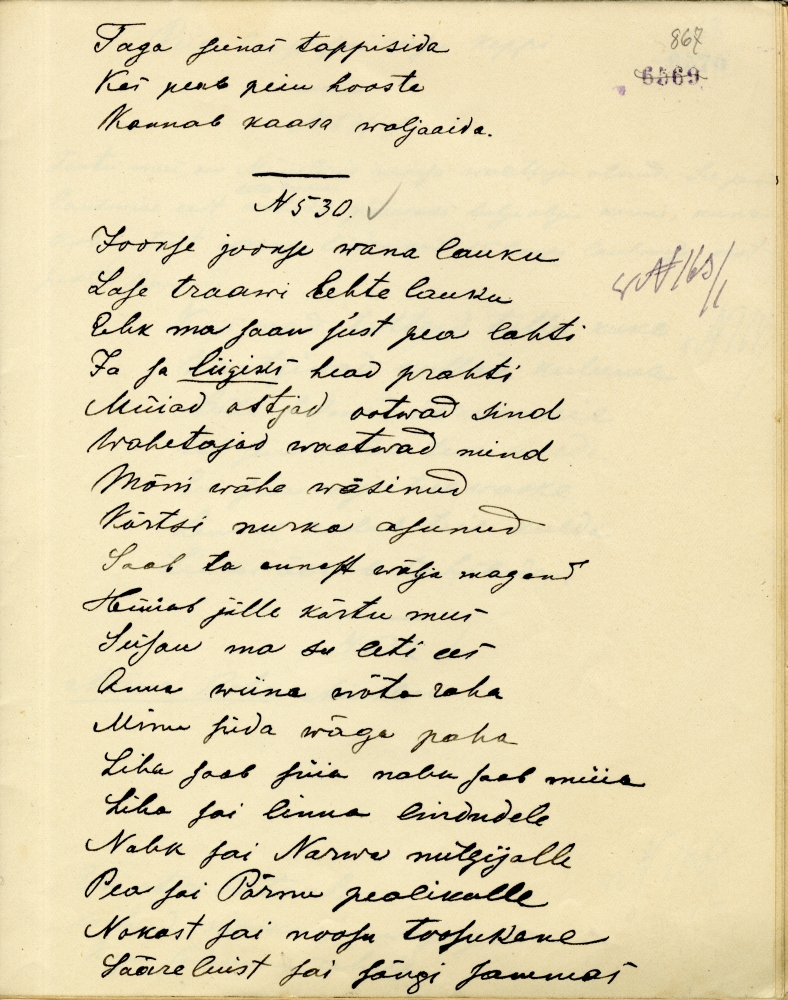 867
6569
Taga seinas tappisida
Kes peab peiu hooste
Kannab kaasa waljaaida.
N 530.
Jookse jookse wana lauku
Lase traawi lehte lauku
Ehk ma saan just pea lahti
Ja sa liigiks head prahti
Müiad ostjad ootwad sind
Wahetajad waatwad mind
Mõni wähe wäsinud
Kõrtsi nurka asunud
Saab ta ennast wälja magand
Hüiab jälle kõrtu mus
Seisan ma su leti ees
Anna wiina wõta raha
Minu süda wäga paha
Liha saab süia nahk saab müia
Liha sai linna lindudele
Nahk sai Narwa nülgijalle
Pea sai Pärnu pealikulle
Nokast sai noosu toosukene
Sääreluist sai sängi sammas